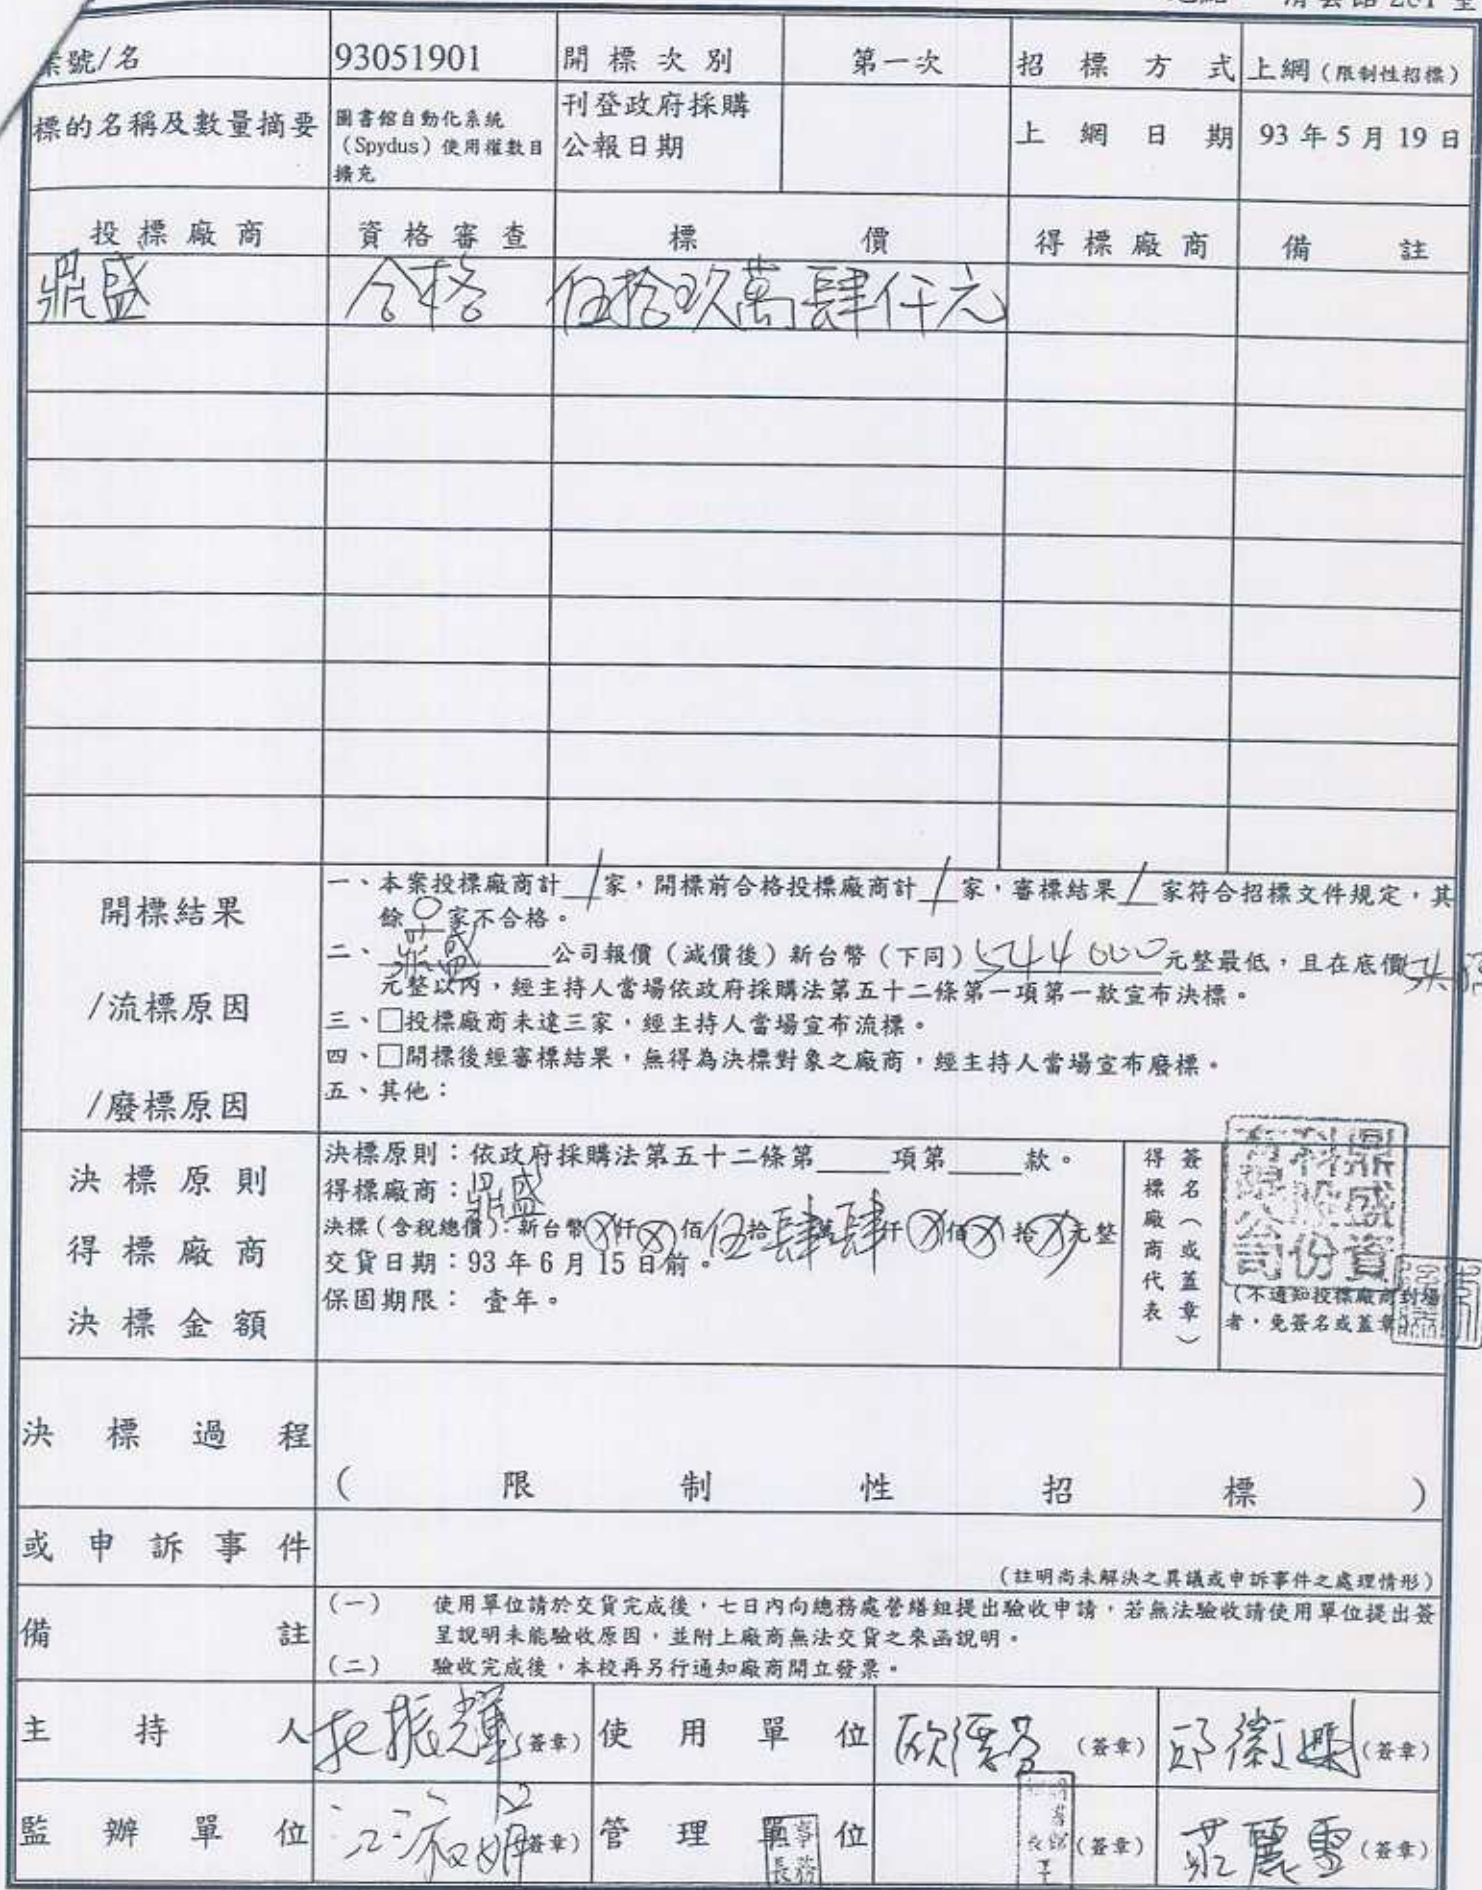 號/名
93051901
開標次別
第一次
招標方式
上網(限制性招標)
標的名稱及數量摘要
圖書館自動化系統
(Spydus)使用權數目
擴充
刊登政府採購
公報日期
上網日期
93年5月19日
投標廠商
資格審查
標價
得標廠商
備註
鼎盛
合格
伍拾玖萬肆仟元
開標結果
/流標原因
/廢標原因
一、本案投標廠商計1家,開標前合格投標廠商計1家,審標結果1家符合招標文件規定,其
餘0家不合格。
二、鼎盛公司報價(減價後)新台幣(下同)544000元整最低,且在底價
元整以內,經主持人當場依政府採購法第五十二條第一項第一款宣布決標。
三、□投標廠商未達三家,經主持人當場宣布流標。
四、□開標後經審標結果,無得為決標對象之廠商,經主持人當場宣布廢標。
五、其他:
決標原則
得標廠商
決標金額
決標原則:依政府採購法第五十二條第____項第____款。
得標廠商:鼎盛
決標(含稅總價):新台幣Ⓧ仟Ⓧ佰伍拾肆萬肆仟Ⓧ佰Ⓧ拾Ⓧ元整
交貨日期:93年6月15日前。
保固期限: 壹年。
得標廠商代表
簽名(或蓋章)
鼎盛資
科股份
有限公司
(不通知投標廠商到場
者,免簽名或蓋章
決標過程
(限制性招標)
或申訴事件
(註明尚未解決之異議或申訴事件之處理情形)
備註
(一) 使用單位請於交貨完成後,七日內向總務處營繕組提出驗收申請,若無法驗收請使用單位提出簽
呈說明未能驗收原因,並附上廠商無法交貨之來函說明。
(二) 驗收完成後,本校再另行通知廠商開立發票。
主持人
振輝(簽章)
使用單位
(簽章)
邱(簽章)
監辦單位
江淑(簽章)
管理單位
事務
長
(簽章)
麗雪(簽章)